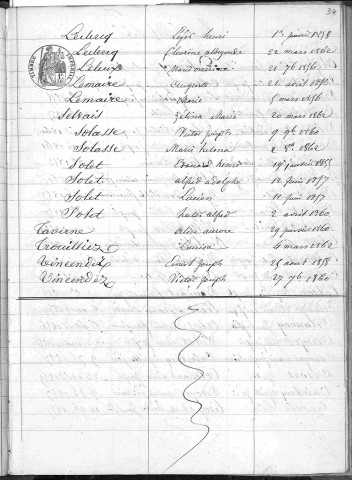 34
Leclercq Léon henri 1er janvier 1858
Leclercq Clarisse 22 mars 1862
Leleux Marie 21 7b 1856
Lemaire Auguste 22 août
Lemaire Marie 5 mars 1856
Selvais Zélina Marie 20 mars 1862
Solasse Victor joseph 9 9b 1860
Solasse Marie helena 2 1862
Solet Edouard henri 19 janvier 1855
Solet alfred adolphe 12 juin 1857
Solet Lucien 12 juin 1857
Solet alfred 2 avril 1860
Taverne aurore 29 janvier 1860
Trouilliez 4 mars 1862
Vincendez joseph 25 août 1858
Vincendez Victor joseph 27 7b 1860